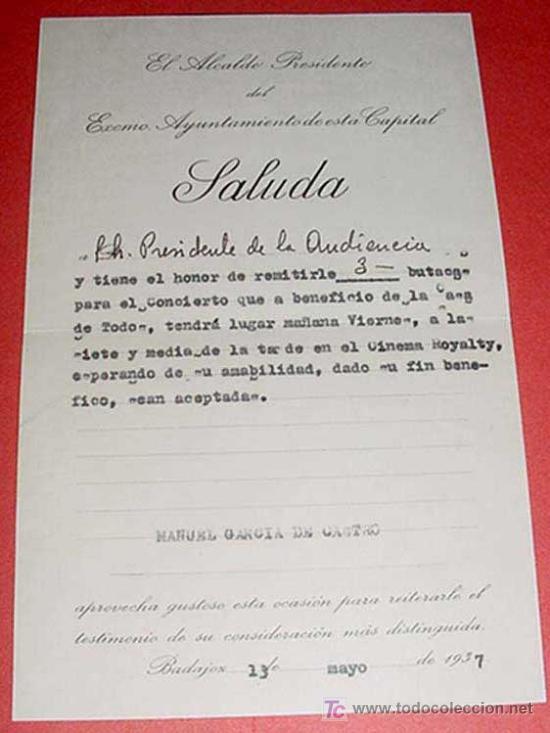 El Alcalde Presidente
del
Excmo. Ayuntamiento de esta Capital
Saluda
Presidente de la Audiencia
y tiene el honor de remitirle 3 — butacas
para el Concierto que a beneficio de la Casa
de Todos, tendrá lugar mañana Viernes, a las
siete y media de la tarde en el Cinema Royalty,
esperando de su amabilidad, dado su fin bené-
fico, sean aceptadas.
MANUEL GARCIA DE CASTRO
aprovecha gustoso esta ocasión para reiterarle el
testimonio de su consideración más distinguida.
Badajoz 13 de mayo de 1937
TC www.todocoleccion.net